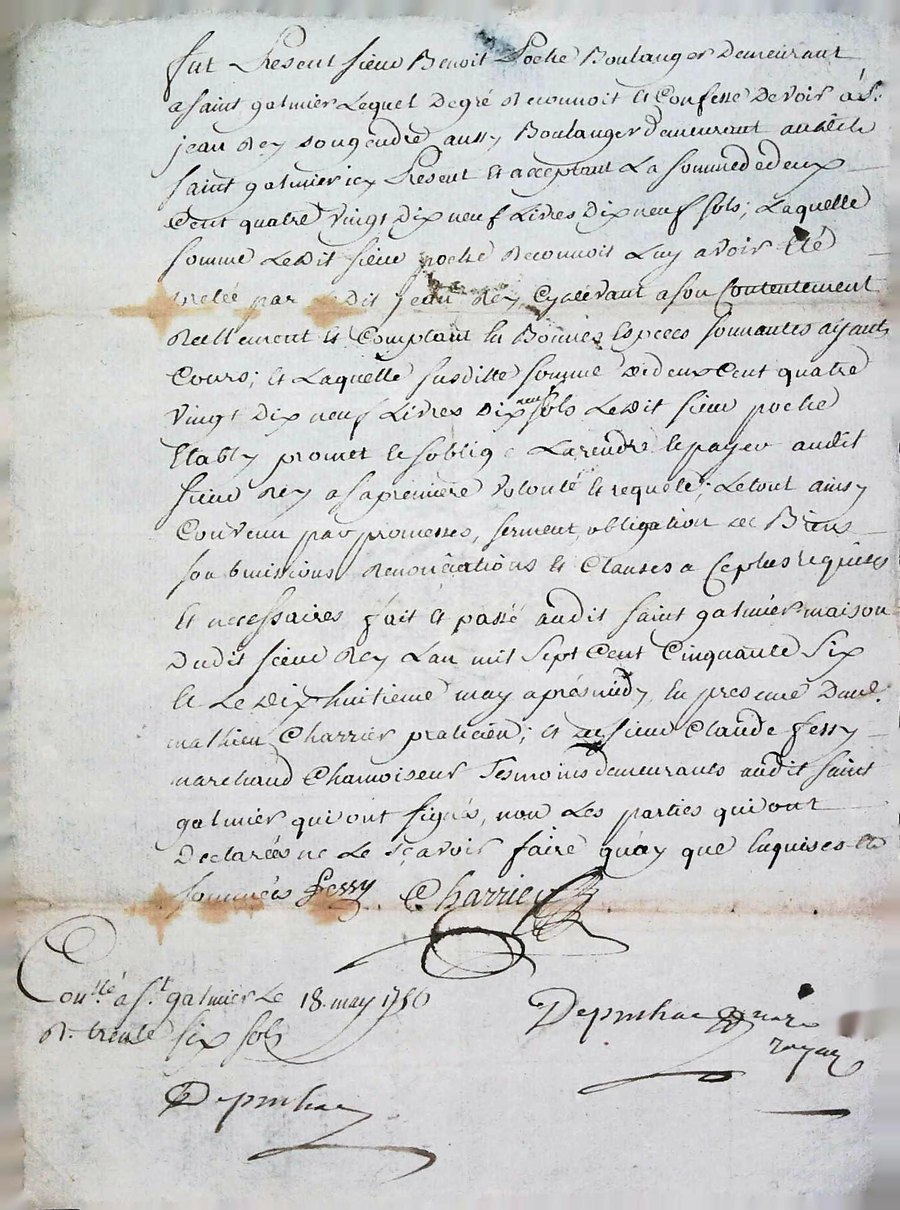 fut Present sieur Benoit Poche Boulanger Demeurant
a saint galmier Lequel Degré Reconnoit et Confesse Devoir a S.r
jean Rey son gendre aussy Boulanger demeurant audit
saint galmier icy Present et acceptant La somme de deux
Cent quatre vingt Dix neuf Livres Dix neuf sols; Laquelle
somme Ledit sieur poche Reconnoit Luy avoir été
pretée par dit jean Rey cy devant a son Contentement
Reellement et Comptant En Bonnes Especes sonnantes ayants
Cours; et Laquelle susditte somme de deux Cent quatre
vingt Dix neuf Livres Dix neuf sols Ledit sieur poche
Etably promet et s'oblige La rendre et payer audit
sieur Rey a sa premiere volonté et requete; Le tout ainsy
Convenu par promesses, serment, obligation de Biens
soubmissions Renonciations et Clauses a Ce plus requises
et necessaires fait et passé audit saint galmier maison
Dudit sieur Rey L'an mil sept Cent Cinquante six
et Le Dix huitieme may aprés midy, En presence
mathieu Charrier praticien; et sieur Claude fessy
marchand Chamoiseur Tesmoins demeurants audit saint
galmier qui ont signés, non Les parties qui ont
Declarées ne Le sçavoir faire quoy que Enquises et
sommées fessy Charrier
Con.llé a S.t galmier Le 18. may 1756
R. trente six sols
Depinhac
Depinhac
no.re
royal